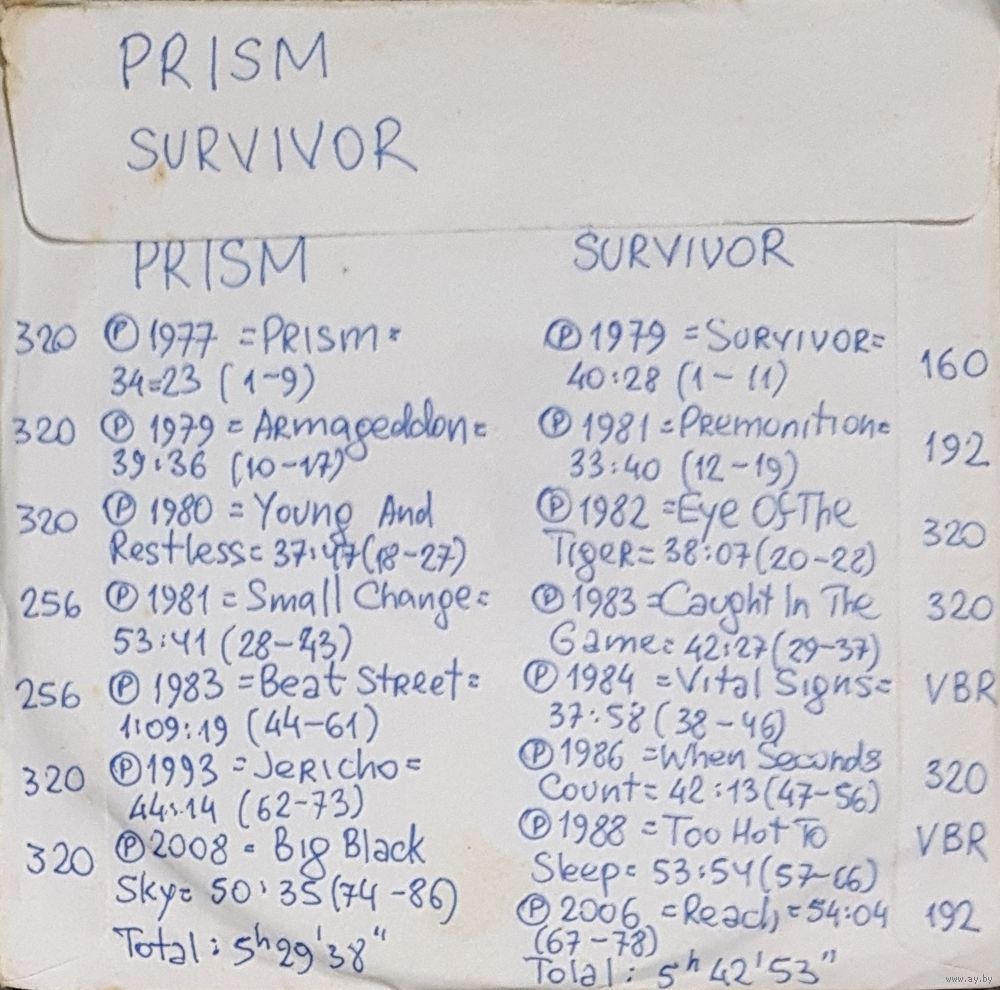 PRISM
SURVIVOR
PRISM
320 Ⓟ 1977 =PRISM=
34=23 (1-9)
320 Ⓟ 1979 = ARmageddon=
39:36 (10-17)
320 Ⓟ 1980 = Young And
Restless= 37:47(18-27)
256 Ⓟ 1981 = Small Change=
53:41 (28-43)
256 Ⓟ 1983 =Beat Street=
1:09:19 (44-61)
320 Ⓟ 1993 =Jericho=
44:14 (62-73)
320 Ⓟ 2008 = Big Black
Sky= 50:35 (74-86)
Total: 5h 29' 38"
SURVIVOR
Ⓟ 1979 =SURVIVOR=
40:28 (1-11) 160
Ⓟ 1981 =Premonition=
33:40 (12-19) 192
Ⓟ 1982 =Eye Of The
Tiger= 38:07(20-28) 320
Ⓟ 1983 =Caught In The
Game= 42:27(29-37) 320
Ⓟ 1984 =Vital Signs=
37:58 (38-46) VBR
Ⓟ 1986 =When Seconds
Count= 42:13(47-56) 320
Ⓟ 1988 =Too Hot To
Sleep= 53:54(57-66) VBR
Ⓟ 2006 =Reach=54:04 192
(67-78)
Total: 5h 42' 53"
www.ay.by